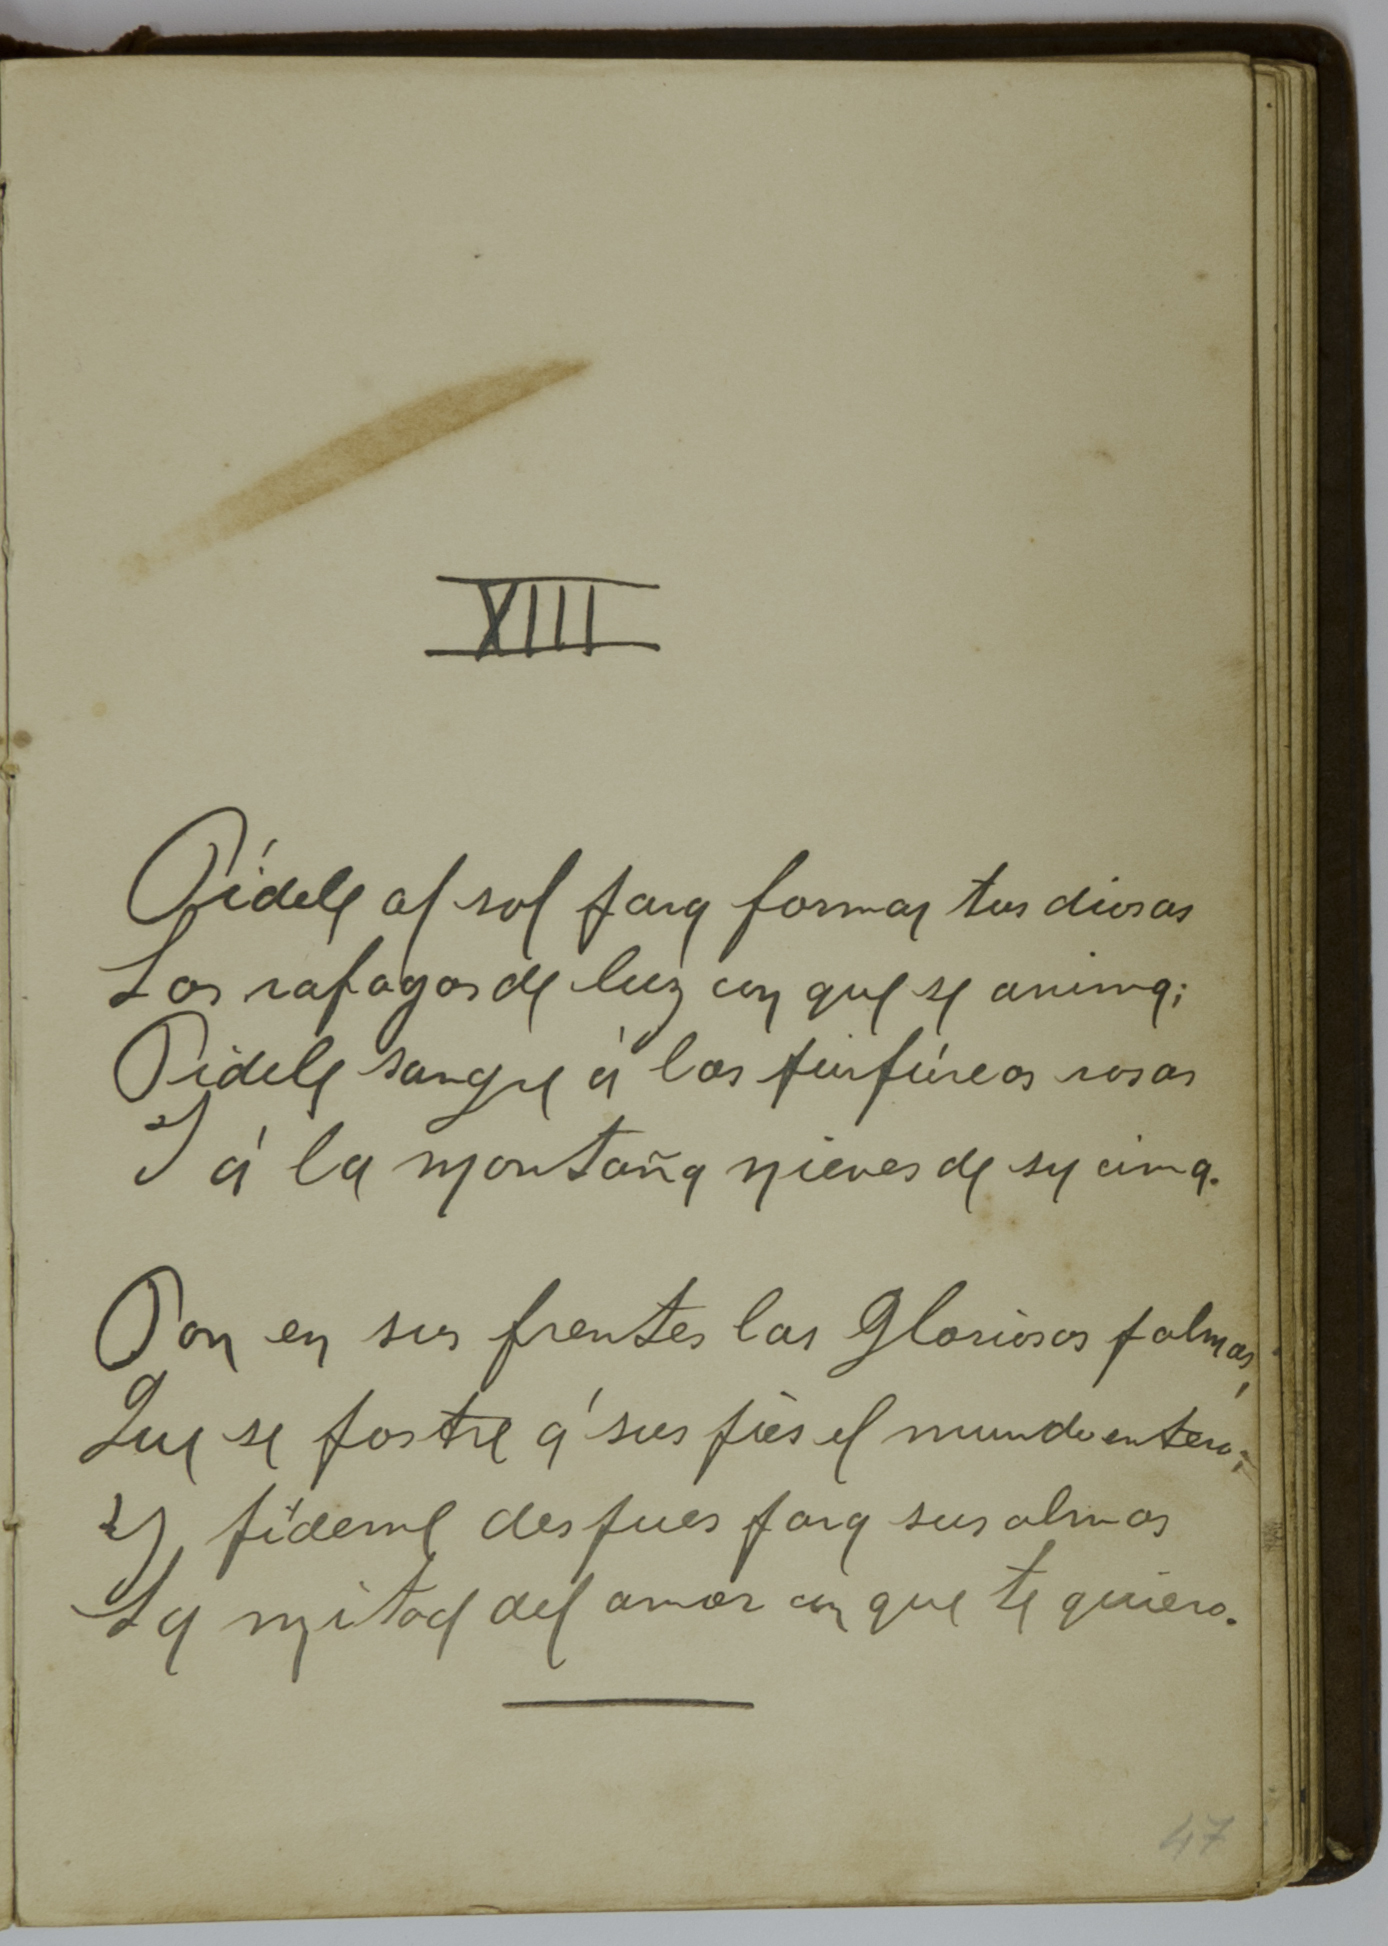 XIII
Pídele al sol para formar tus diosas
Las rafagas de luz con que se anima;
Pidele sangre á las purpúreas rosas
Y á la montaña nieves de su cima.
Pon en sus frentes las gloriosas palmas,
Que se postre á sus piés el mundo entero;
Y pídeme despues para sus almas
La mitad del amor con que te quiero.
47